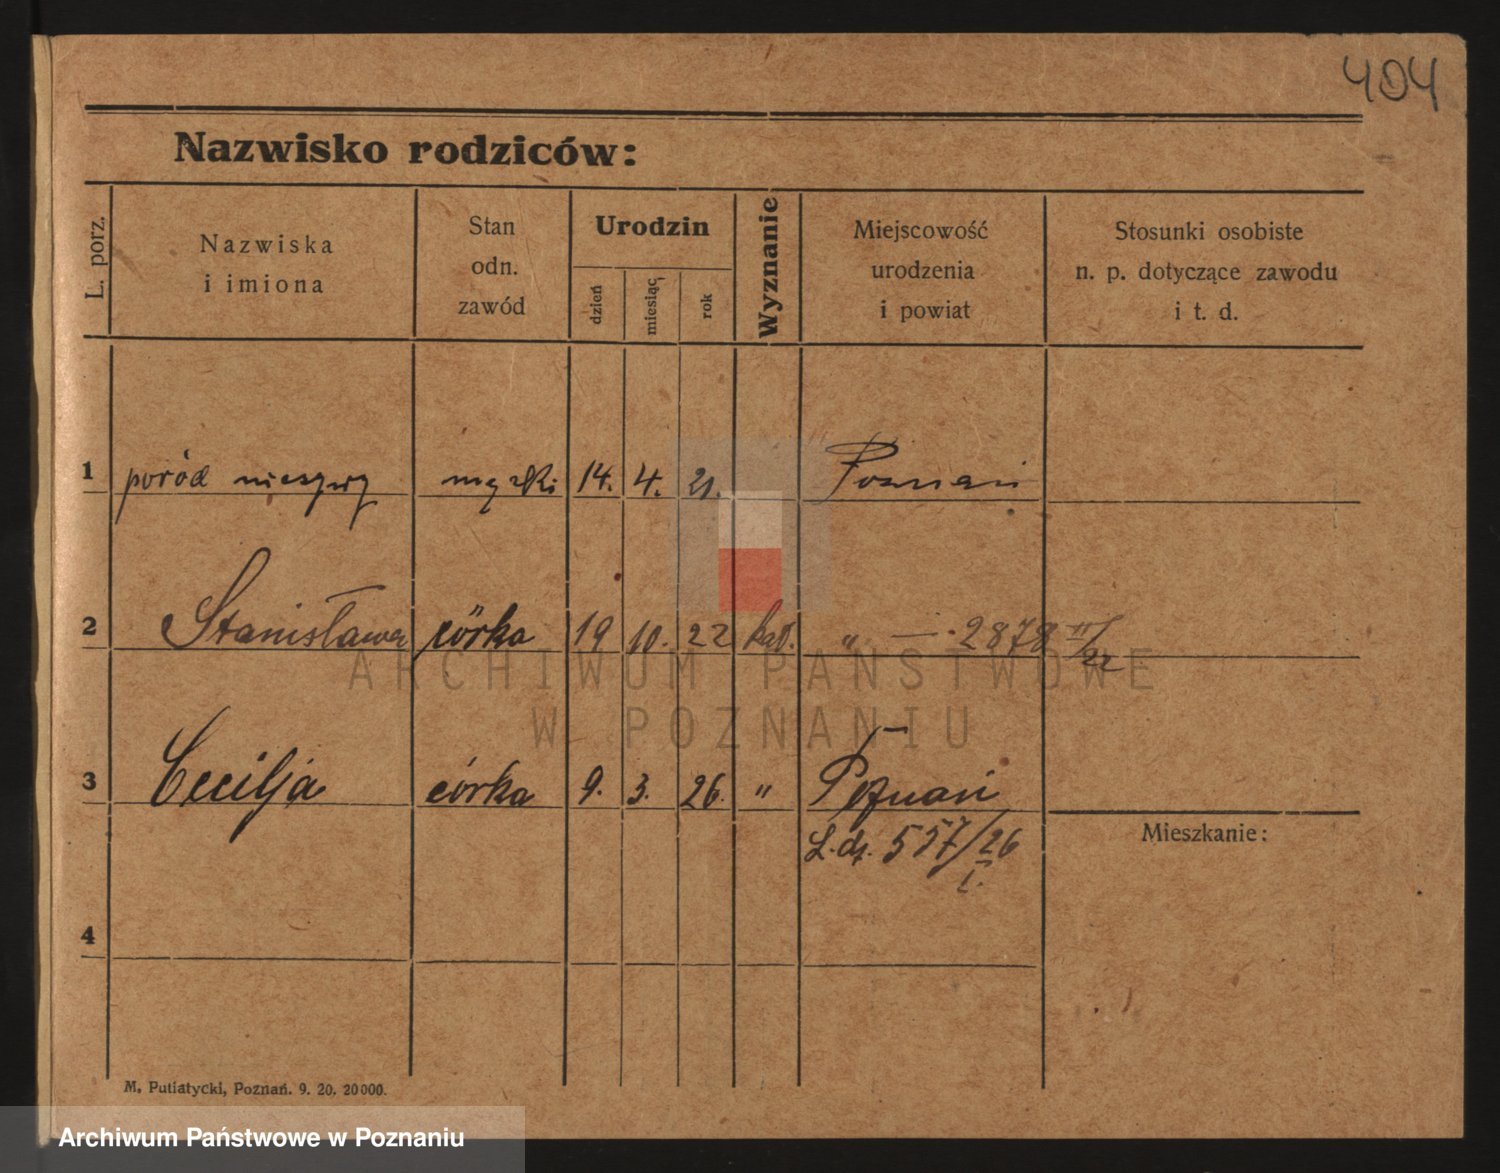 404
Nazwisko rodziców:
L. porz.
Nazwiska
i imiona
Stan
odn.
zawód
Urodzin
dzień
miesiąc
rok
Wyznanie
Miejscowość
urodzenia
i powiat
Stosunki osobiste
n. p. dotyczące zawodu
i t. d.
1 poród nieżywy męzki 14. 4. 21. Poznań
2 Stanisława córka 19 10. 22 kat. " — 2878 II/22
3 Cecilja córka 9. 3. 26. " Poznań
L. dz. 557/26
I.
Mieszkanie:
4
M. Putiatycki, Poznań. 9. 20. 20000.
ARCHIWUM PAŃSTWOWE
W POZNANIU
Archiwum Państwowe w Poznaniu